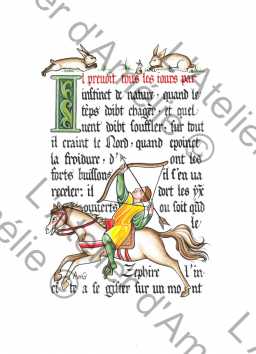 Il prevoit tous les iours par
instinct de nature, quand le
tēps doibt chāger, et quel
uent doibt souffler, sur tout
il craint le Nord, quand
la froidure, d' ont les
forts buissons il s'en ua
il dort les yx
ouuerts ou soit que
le
Zephire l'in
cite a se gister sur un mo ent
L'Atelier d'Amélie ©